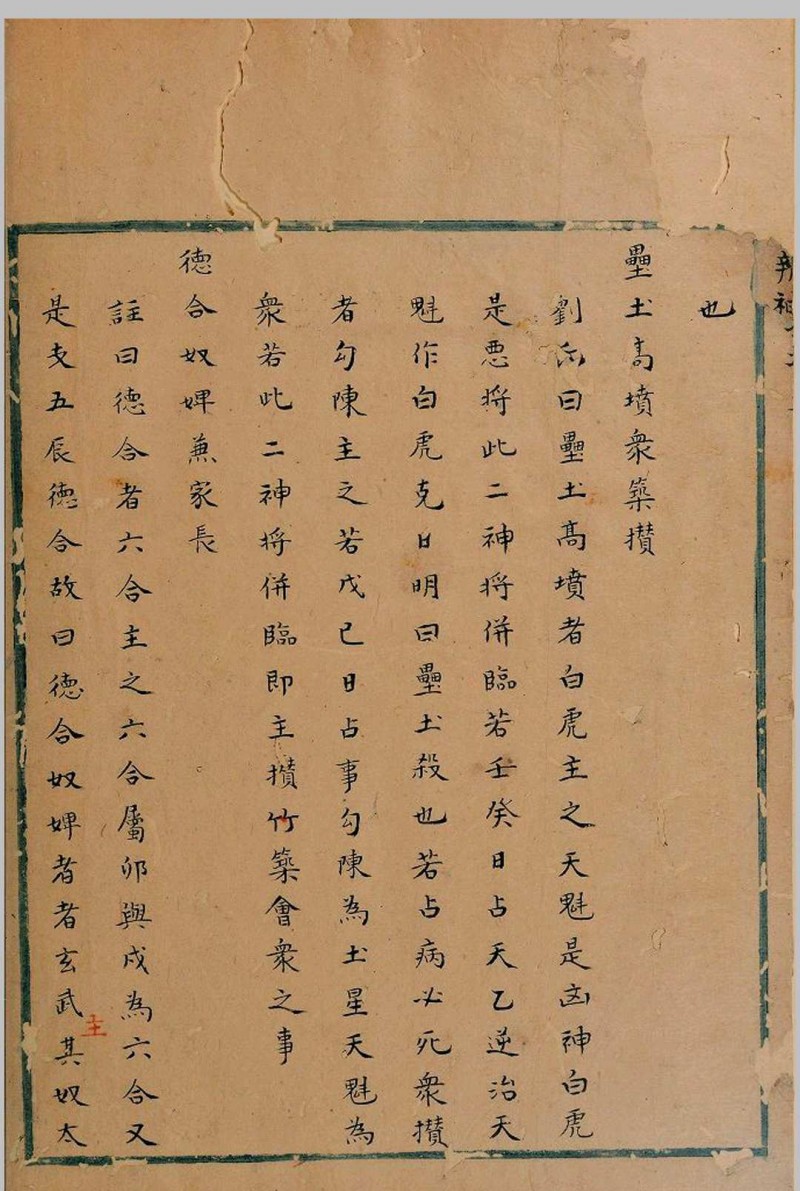 也
壘土高墳衆築攅
劉氏曰壘土高墳者白虎主之天魁是凶神白虎
是悪将此二神将併臨若壬癸日占天乙逆治天
魁作白虎克日明曰壘土殺也若占病必死衆攅
者勾陳主之若戊己日占事勾陳為土星天魁為
衆若此二神将併臨即主攅竹築會衆之事
德合奴婢兼家長
註曰德合者六合主之六合屬卯與戌為六合又
是支五辰德合故曰德合奴婢者者玄武其奴太
主